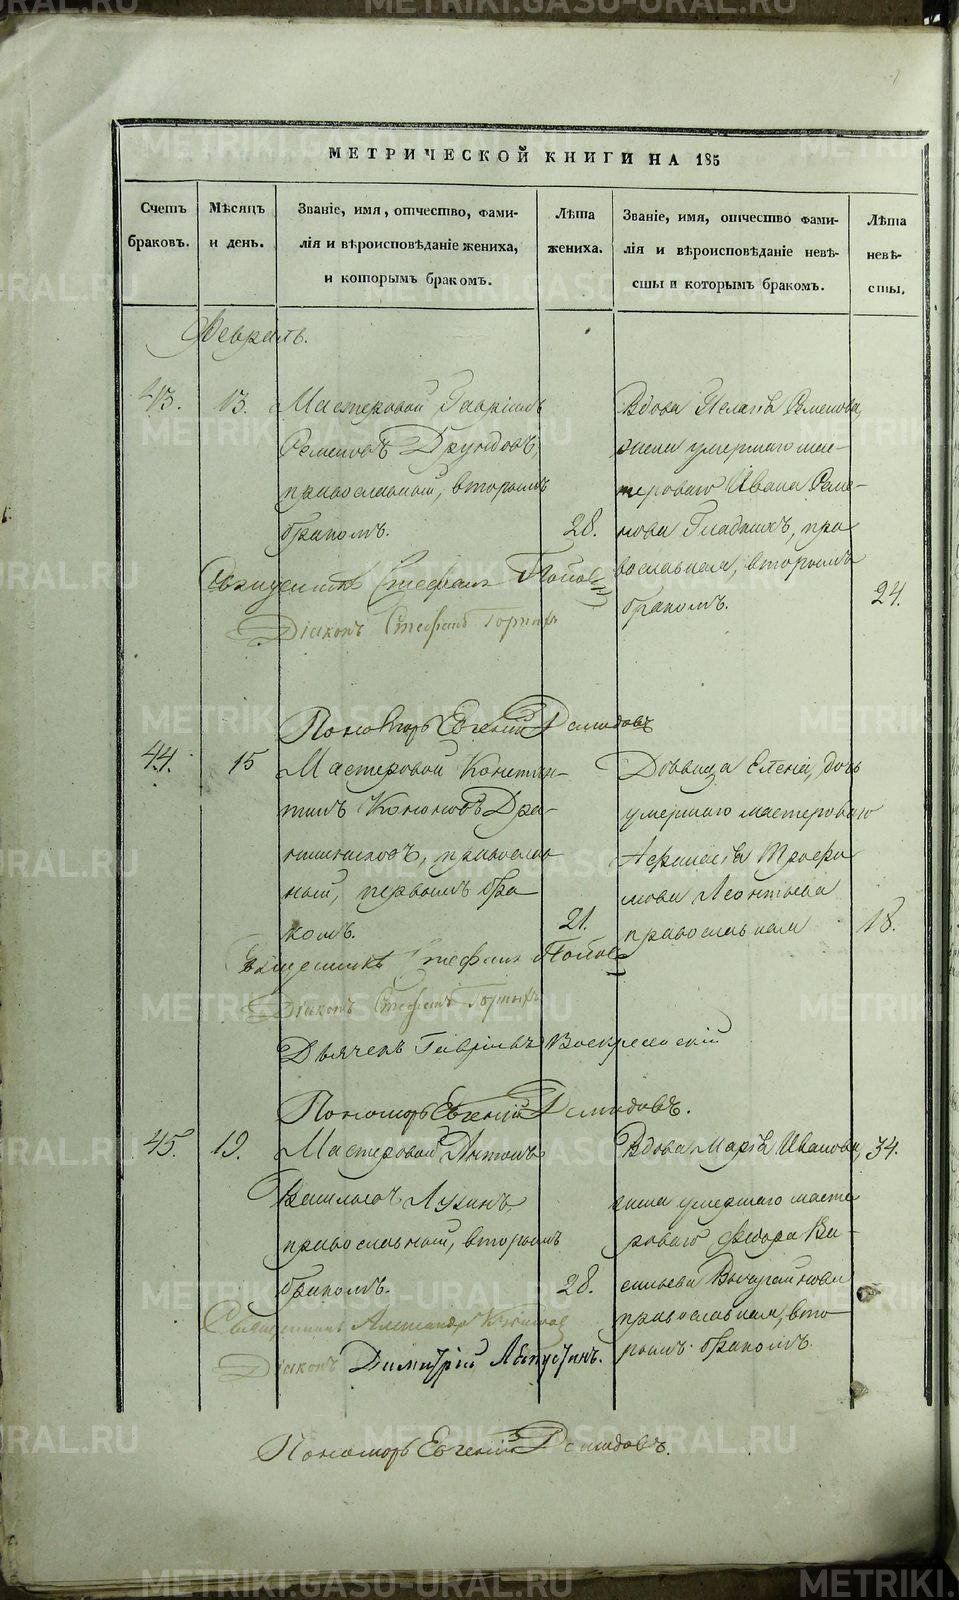 МЕТРИЧЕСКОЙ КНИГИ НА 185
Счетъ браковъ.
Мѣсяцъ и день.
Званіе, имя, отчество, фами-
лія и вѣроисповѣданіе жениха,
и которымъ бракомъ.
Лѣта жениха.
Званіе, имя, отчество фами-
лія и вѣроисповѣданіе невѣ-
сты и которымъ бракомъ.
Лѣта невѣ-
сты.
Февраль.
43.
13.
Мастеровой Гавріилъ
Семеновъ Друндовъ,
православный, вторымъ
бракомъ.
28.
Вдова Пелагѣя Семенова,
жена умершаго мас-
тероваго Ивана Семе-
нова Гладкихъ, пра
вославная, вторымъ
бракомъ.
24.
Священникъ Стефанъ Поповъ
Діаконъ Стефанъ
Пономарь Евгеній Демидовъ
44.
15
Мастеровой Констан-
тинъ Кононовъ
православ
ный, первымъ бра
комъ.
21.
Дѣвица Елена, дочь
умершаго мастероваго
Трофи
мова Леонтьева
православная
18.
Священникъ Стефанъ Поповъ
Діаконъ Стефанъ
Дьячекъ Гавріилъ Воскресенскій
Пономарь Евгеній Демидовъ.
45.
19.
Мастеровой Антонъ
Васильевъ Лузинъ,
православный, вторымъ
бракомъ.
28.
Вдова Марія Иванова,
жена умершаго масте
роваго Федора Ва-
сильева
православная, вто
рымъ бракомъ.
34.
Священникъ Александръ
Діаконъ Димитрій Августинъ.
Пономарь Евгеній Демидовъ.
METRIKI.GASO-URAL.RU